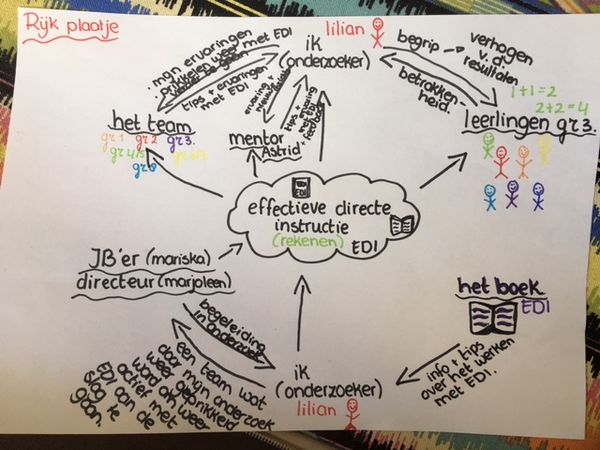 Rijk plaatje
lilian
ik
(onderzoeker)
mijn ervaringen
prikkelen weer met EDI
tips + ervaringen
met EDI
begrip
verhogen
v. d.
resultaten
betrokken-
heid.
1+1=2
2+2=4
het team
gr 1 gr 2 gr 3.
gr 4/5
leerlingen gr 3.
mentor
Astrid
ervaring +
tips +
feedback
EDI
effectieve directe
instructie
(rekenen) EDI
JB'er (mariska)
directeur (marjoleen)
begeleiding
in onderzoek
een team wat
door mijn onderzoek
weer geprikkeld
word om weer
actief met
EDI aan de
slag te
gaan.
ik
(onderzoeker)
lilian
het boek
EDI
info + tips
over het werken
met EDI.